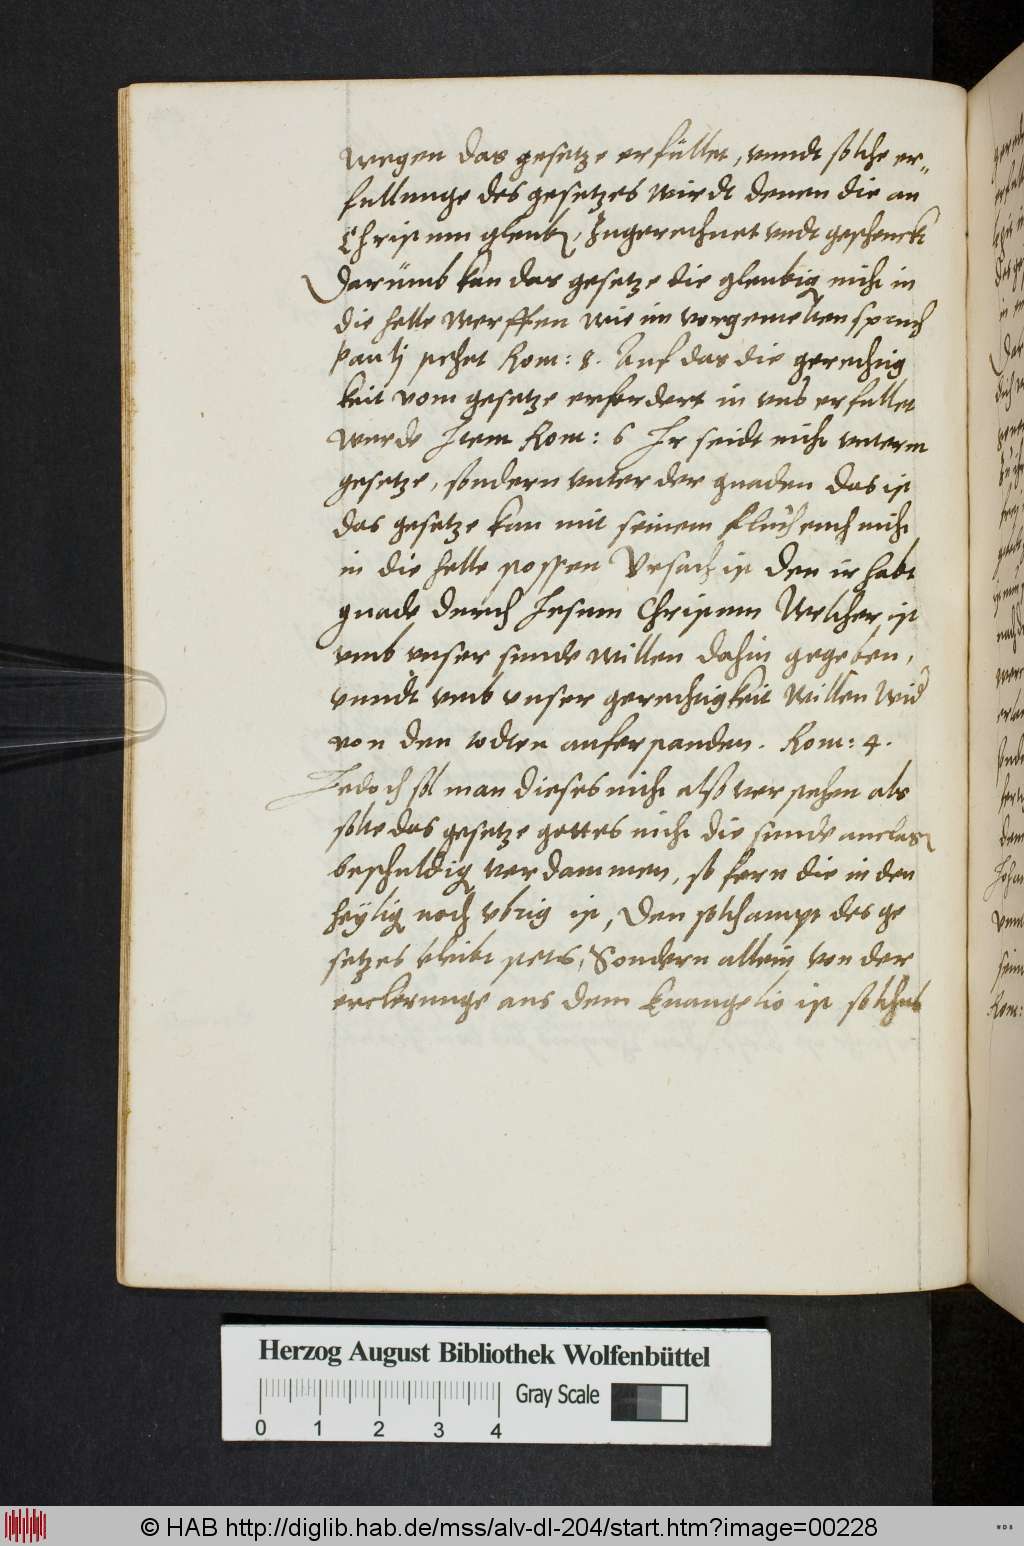 wegen das gesetze erfüllet, vnndt solche er-
fullunge des gesetzes wirdt denen die an
Christum gleuben, Zugerechnet vndt geschenckt
Darümb kan das gesetze die gleubigen nicht in
die helle werffen wie im vorgemelten spruch
Pauli stehet Rom: 8. Auf das die gerechtig
keit vom gesetze erfordert in vns erfullet
werde Item Rom: 6 Ir seidt nicht vnterm
gesetze, sondern vnter der gnaden das ist
das gesetze kan mit seinem fluch euch nicht
in die helle stossen Vrsach ist den ir habt
gnade durch Iesum Christum Welcher ist
vmb vnser sunde willen dahin gegeben,
vnndt vmb vnser gerechtigkeit willen wider
von den todten auferstanden. Rom: 4.
Iedoch sol man dieses nicht also verstehen als
solte das gesetze gottes nicht die sunde anclagen
beschuldigen verdammen, so fern die in den
heyligen noch vbrig ist, Den solch ampt des ge
setzes bleibt stets, Sondern allein von der
erclerunge aus dem Euangelio ist solchs
Herzog August Bibliothek Wolfenbüttel
0 1 2 3 4 Gray Scale
© HAB http://diglib.hab.de/mss/alv-dl-204/start.htm?image=00228